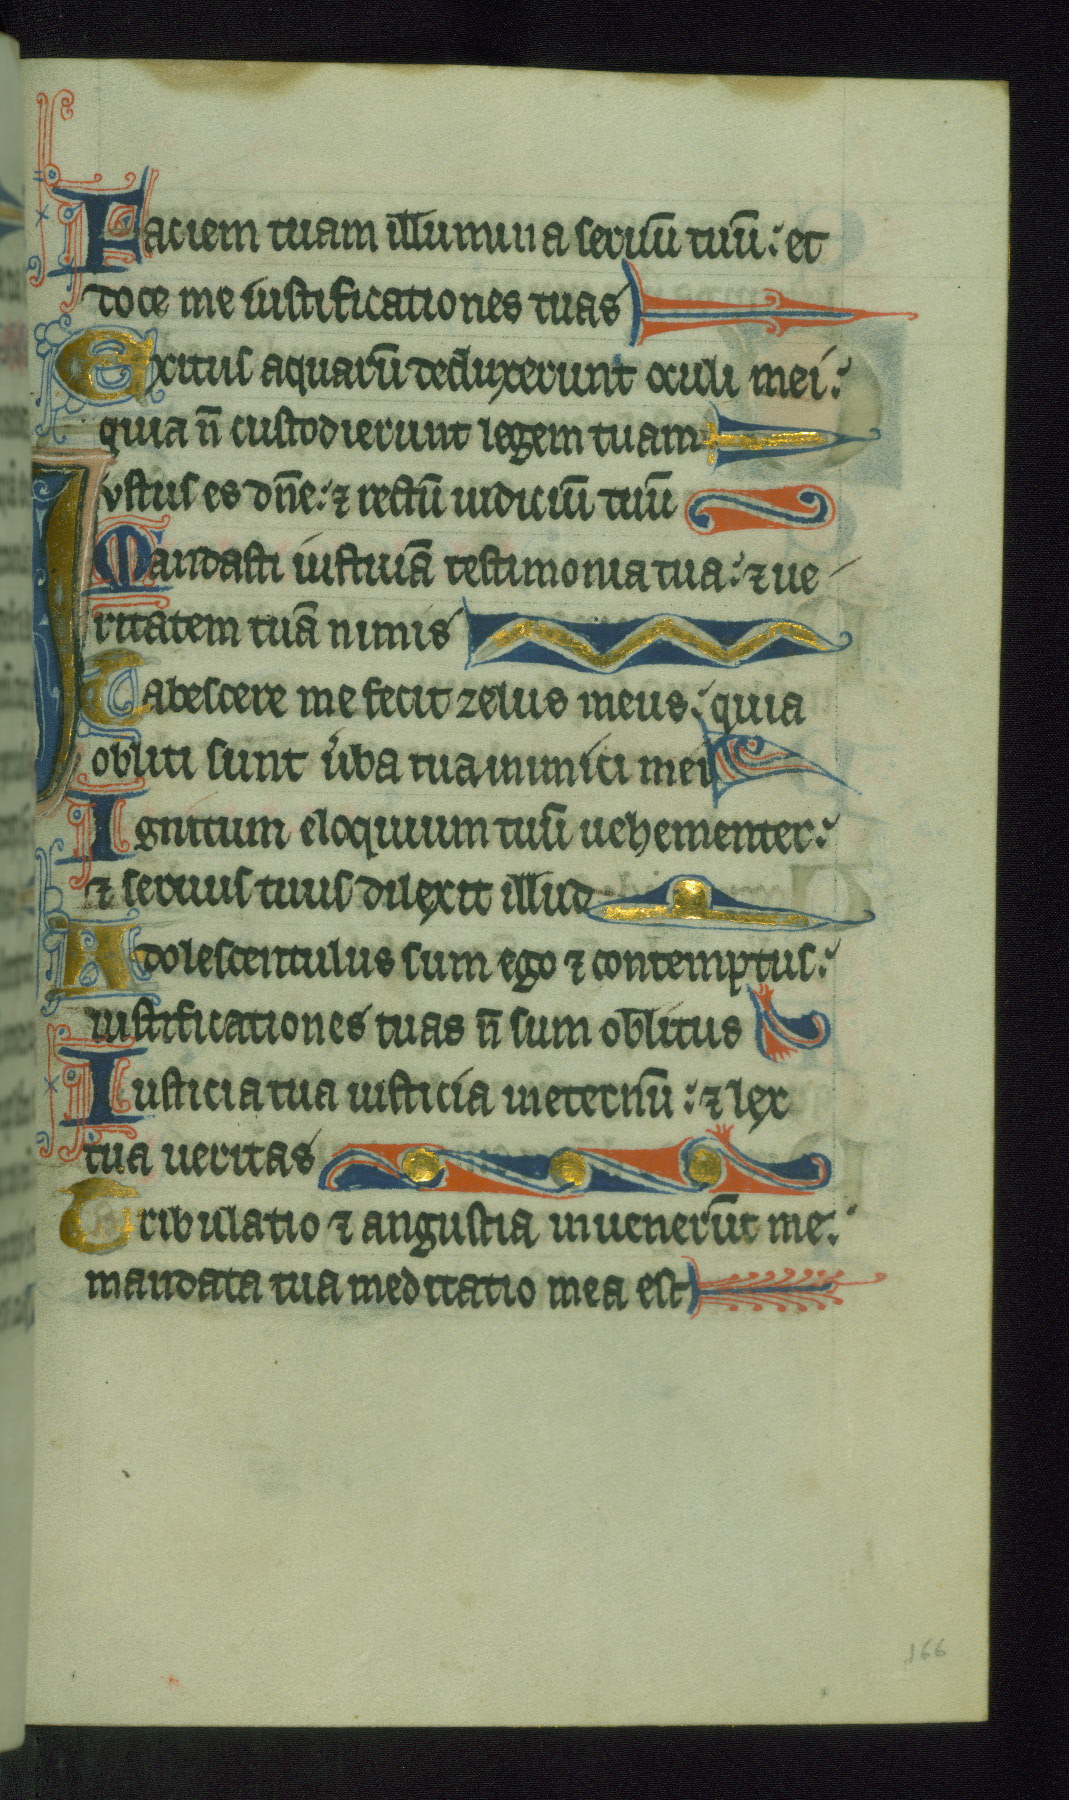 Faciem tuam illumina seruū tuū: et
doce me iustificationes tuas
Exitus aquarū deduxerunt oculi mei:
quia n̄ custodierunt legem tuam
Iustus es dn̄e: ⁊ rectū iudiciū tuū
Mandasti iusticiā testimonia tua: ⁊ ue
ritatem tuā nimis
Tabescere me fecit zelus meus: quia
obliti sunt ūba tua inimici mei
Ignitum eloquium tuū uehementer:
⁊ seruus tuus dilexit illud
Adolescentulus sum ego ⁊ contemptus:
iustificationes tuas n̄ sum oblitus
Iusticia tua iusticia in eternū: ⁊ lex
tua ueritas
Tribulatio ⁊ angustia inuenerūt me:
mandata tua meditatio mea est
166